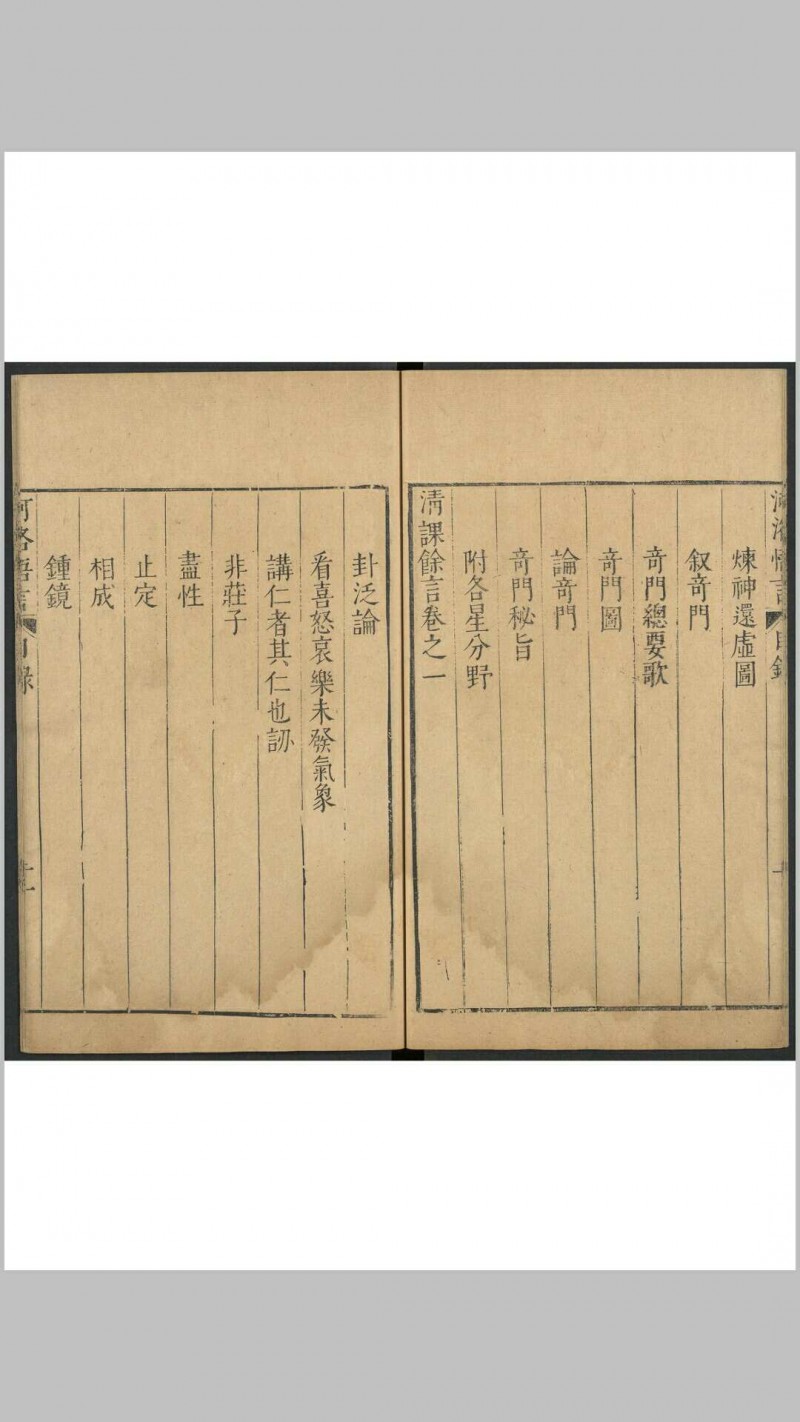 煉神還虛圖
叙奇門
竒門總要歌
竒門圖
論竒門
竒門秘旨
附各星分野
清課餘言卷之一
卦泛論
看喜怒哀樂未發氣象
講仁者其仁也訒
非莊子
盡性
止定
相成
鍾鏡